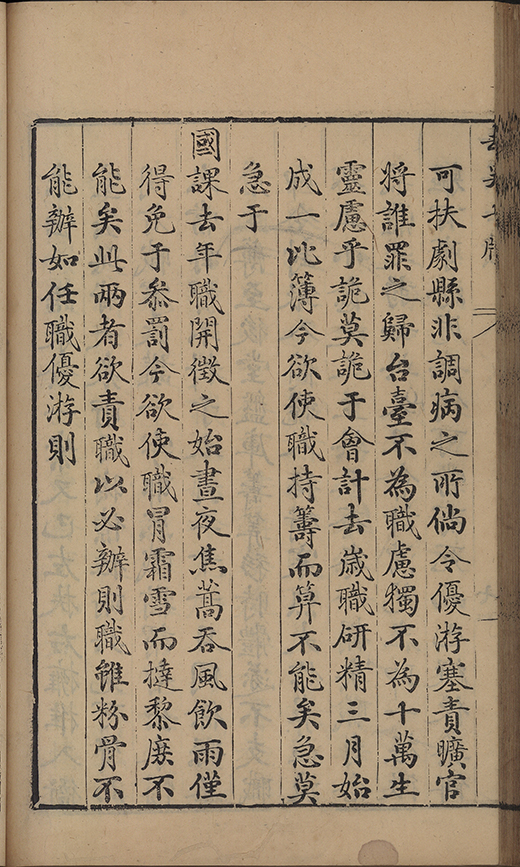 可扶劇縣非調病之所倘令優游塞責曠官
將誰罪之歸台臺不為職慮獨不為十萬生
靈慮乎詭莫詭于會計去歲職研精三月始
成一比簿今欲使職持籌而算不能矣急莫
急于
國課去年職開徵之始晝夜焦蒿吞風飲雨僅
得免于參罰今欲使職冒霜雪而撻黎庶不
能矣此兩者欲責職以必辦則職雖粉骨不
能辦如任職優游則